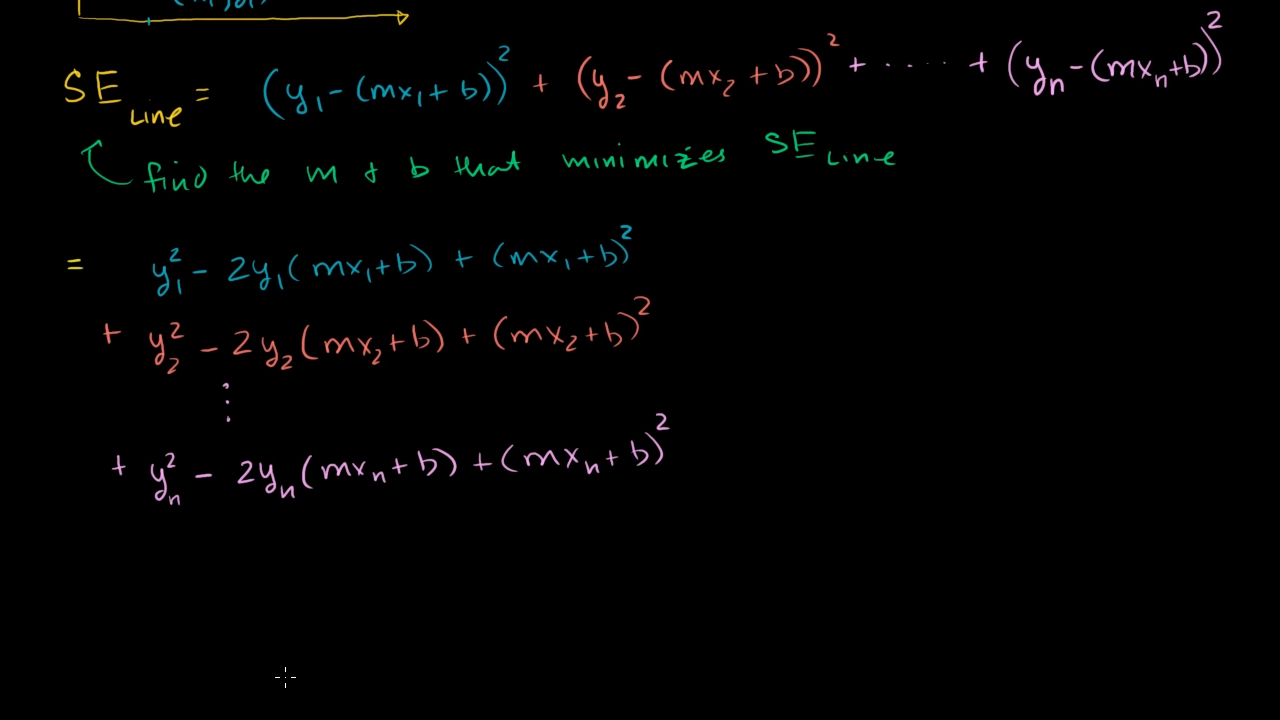 SE Line = (y₁ - (mx₁ + b))² + (y₂ - (mx₂ + b))² + ····· + (yₙ - (mxₙ+b))²
find the m + b that minimizes SE Line
= y₁² - 2y₁(mx₁+b) + (mx₁+b)²
+ y₂² - 2y₂(mx₂+b) + (mx₂+b)²
⋮
+ yₙ² - 2yₙ(mxₙ+b) + (mxₙ+b)²